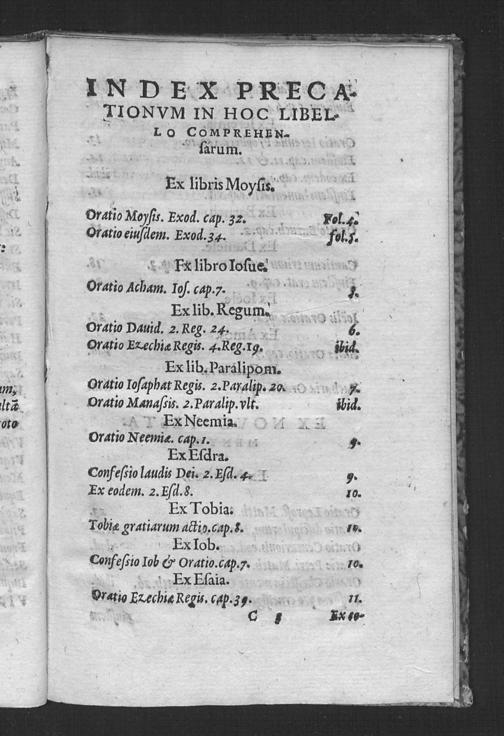 INDEX PRECA-
TIONVM IN HOC LIBEL-
LO COMPREHEN-
ſarum.
Ex libris Moyſis.
Oratio Moyſis. Exod. cap. 32. Fol. 4.
Oratio eiuſdem. Exod. 34. fol. 5.
Ex libro Ioſue.
Oratio Acham. Ioſ. cap. 7.
Ex lib. Regum.
Oratio Dauid. 2. Reg. 24. 6.
Oratio Ezechiæ Regis. 4. Reg. 19. ibid.
Ex lib. Paralipom.
Oratio Ioſaphat Regis. 2. Paralip. 20. 7.
Oratio Manaſſis. 2. Paralip. vlt. ibid.
Ex Neemia.
Oratio Neemiæ. cap. 1. 9.
Ex Eſdra.
Confeſsio laudis Dei. 2. Eſd. 4. 9.
Ex eodem. 2. Eſd. 8. 10.
Ex Tobia.
Tobiæ gratiarum actio. cap. 8. 10.
Ex Iob.
Confeſsio Iob & Oratio. cap. 7. 10.
Ex Eſaia.
Oratio Ezechiæ Regis. cap. 39. 11.
C Ex eo-